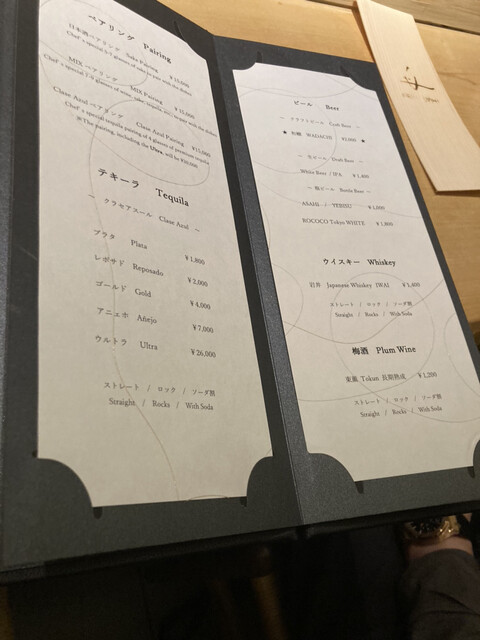 ペアリング Pairing
日本酒ペアリング Sake Pairing
MIX ペアリング MIX Pairing ¥15,000
Clase Azul ペアリング Clase Azul Pairing ¥15,000
Chef's special tequila pairing of 4 glasses of premium tequila
※The pairing, including the Ultra, will be
テキーラ Tequila
~ クラセアスール Clase Azul ~
プラタ Plata ¥1,800
レポサド Reposado ¥2,000
ゴールド Gold ¥4,000
アニェホ Añejo ¥7,000
ウルトラ Ultra ¥26,000
ストレート / ロック / ソーダ割
Straight / Rocks / With Soda
ビール Beer
~ クラフトビール Craft Beer ~
WABACHI
~ 生ビール Draft Beer ~
White Beer / IPA ¥1,400
~ 瓶ビール Bottle Beer ~
ASAHI / YEBISU ¥1,000
ROCOCO Tokyo WHITE ¥1,800
ウイスキー Whiskey
岩井 Japanese Whiskey IWAI ¥1,400
ストレート / ロック / ソーダ割
Straight / Rocks / With Soda
梅酒 Plum Wine
東薫 Tokun 長期熟成 ¥1,200
ストレート / ロック / ソーダ割
Straight / Rocks / With Soda